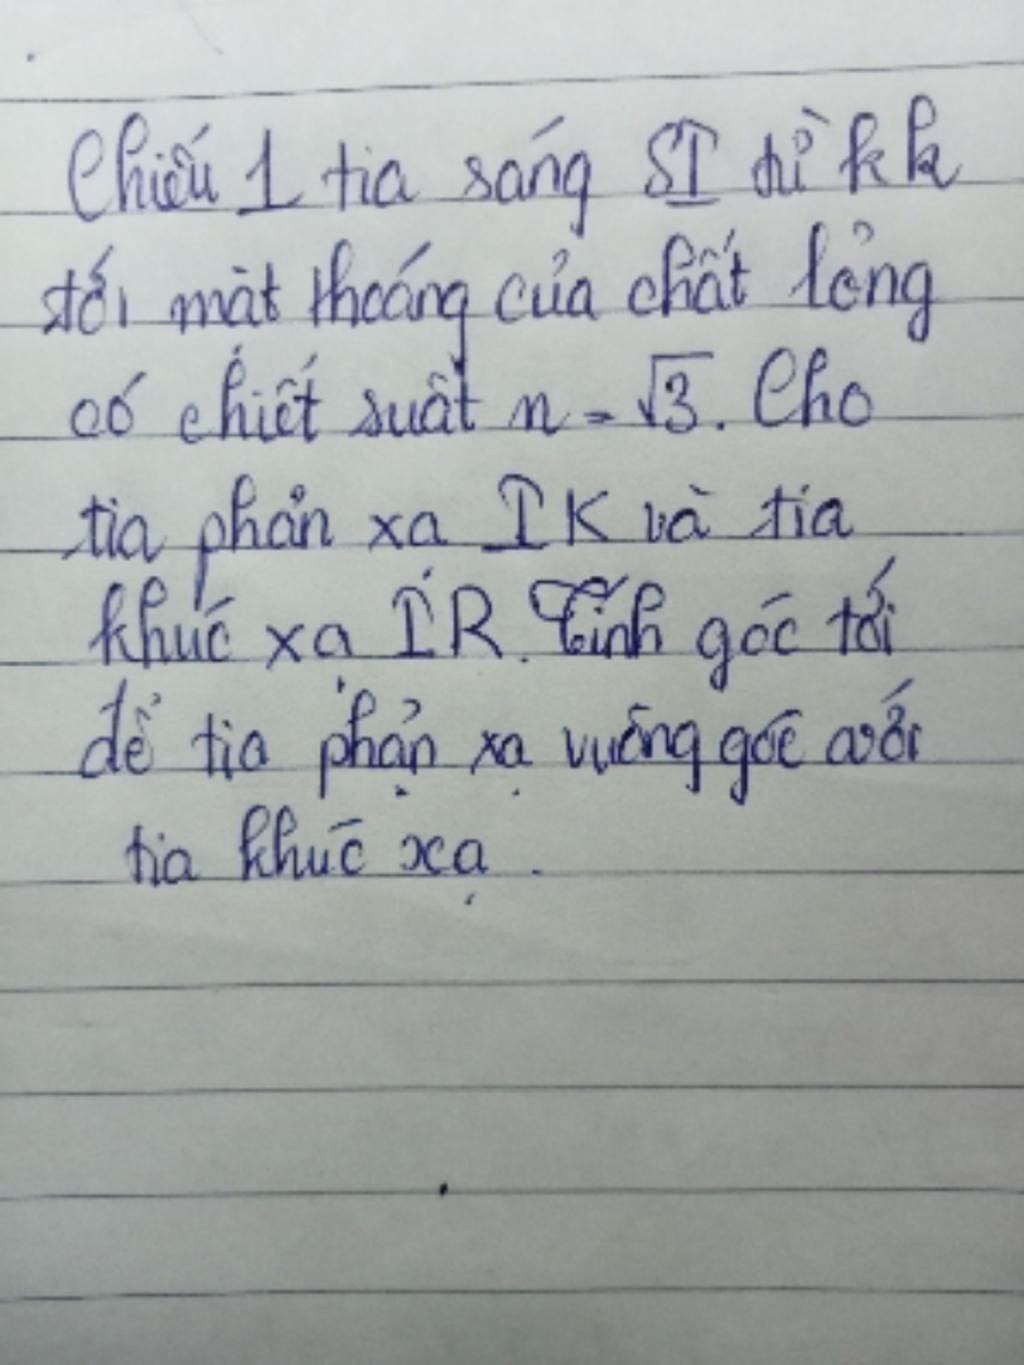 Chiếu 1 tia sáng SI từ kk
tới mặt thoáng của chất lỏng
có chiết suất n = √3. Cho
tia phản xạ IK và tia
khúc xạ IR. Tính góc tới
để tia phản xạ vuông góc với
tia khúc xạ.